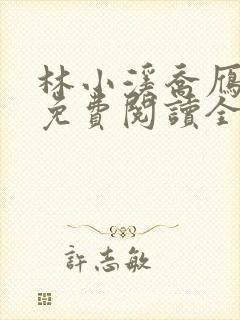 林小溪喬雁
免費閱讀全
許志敏